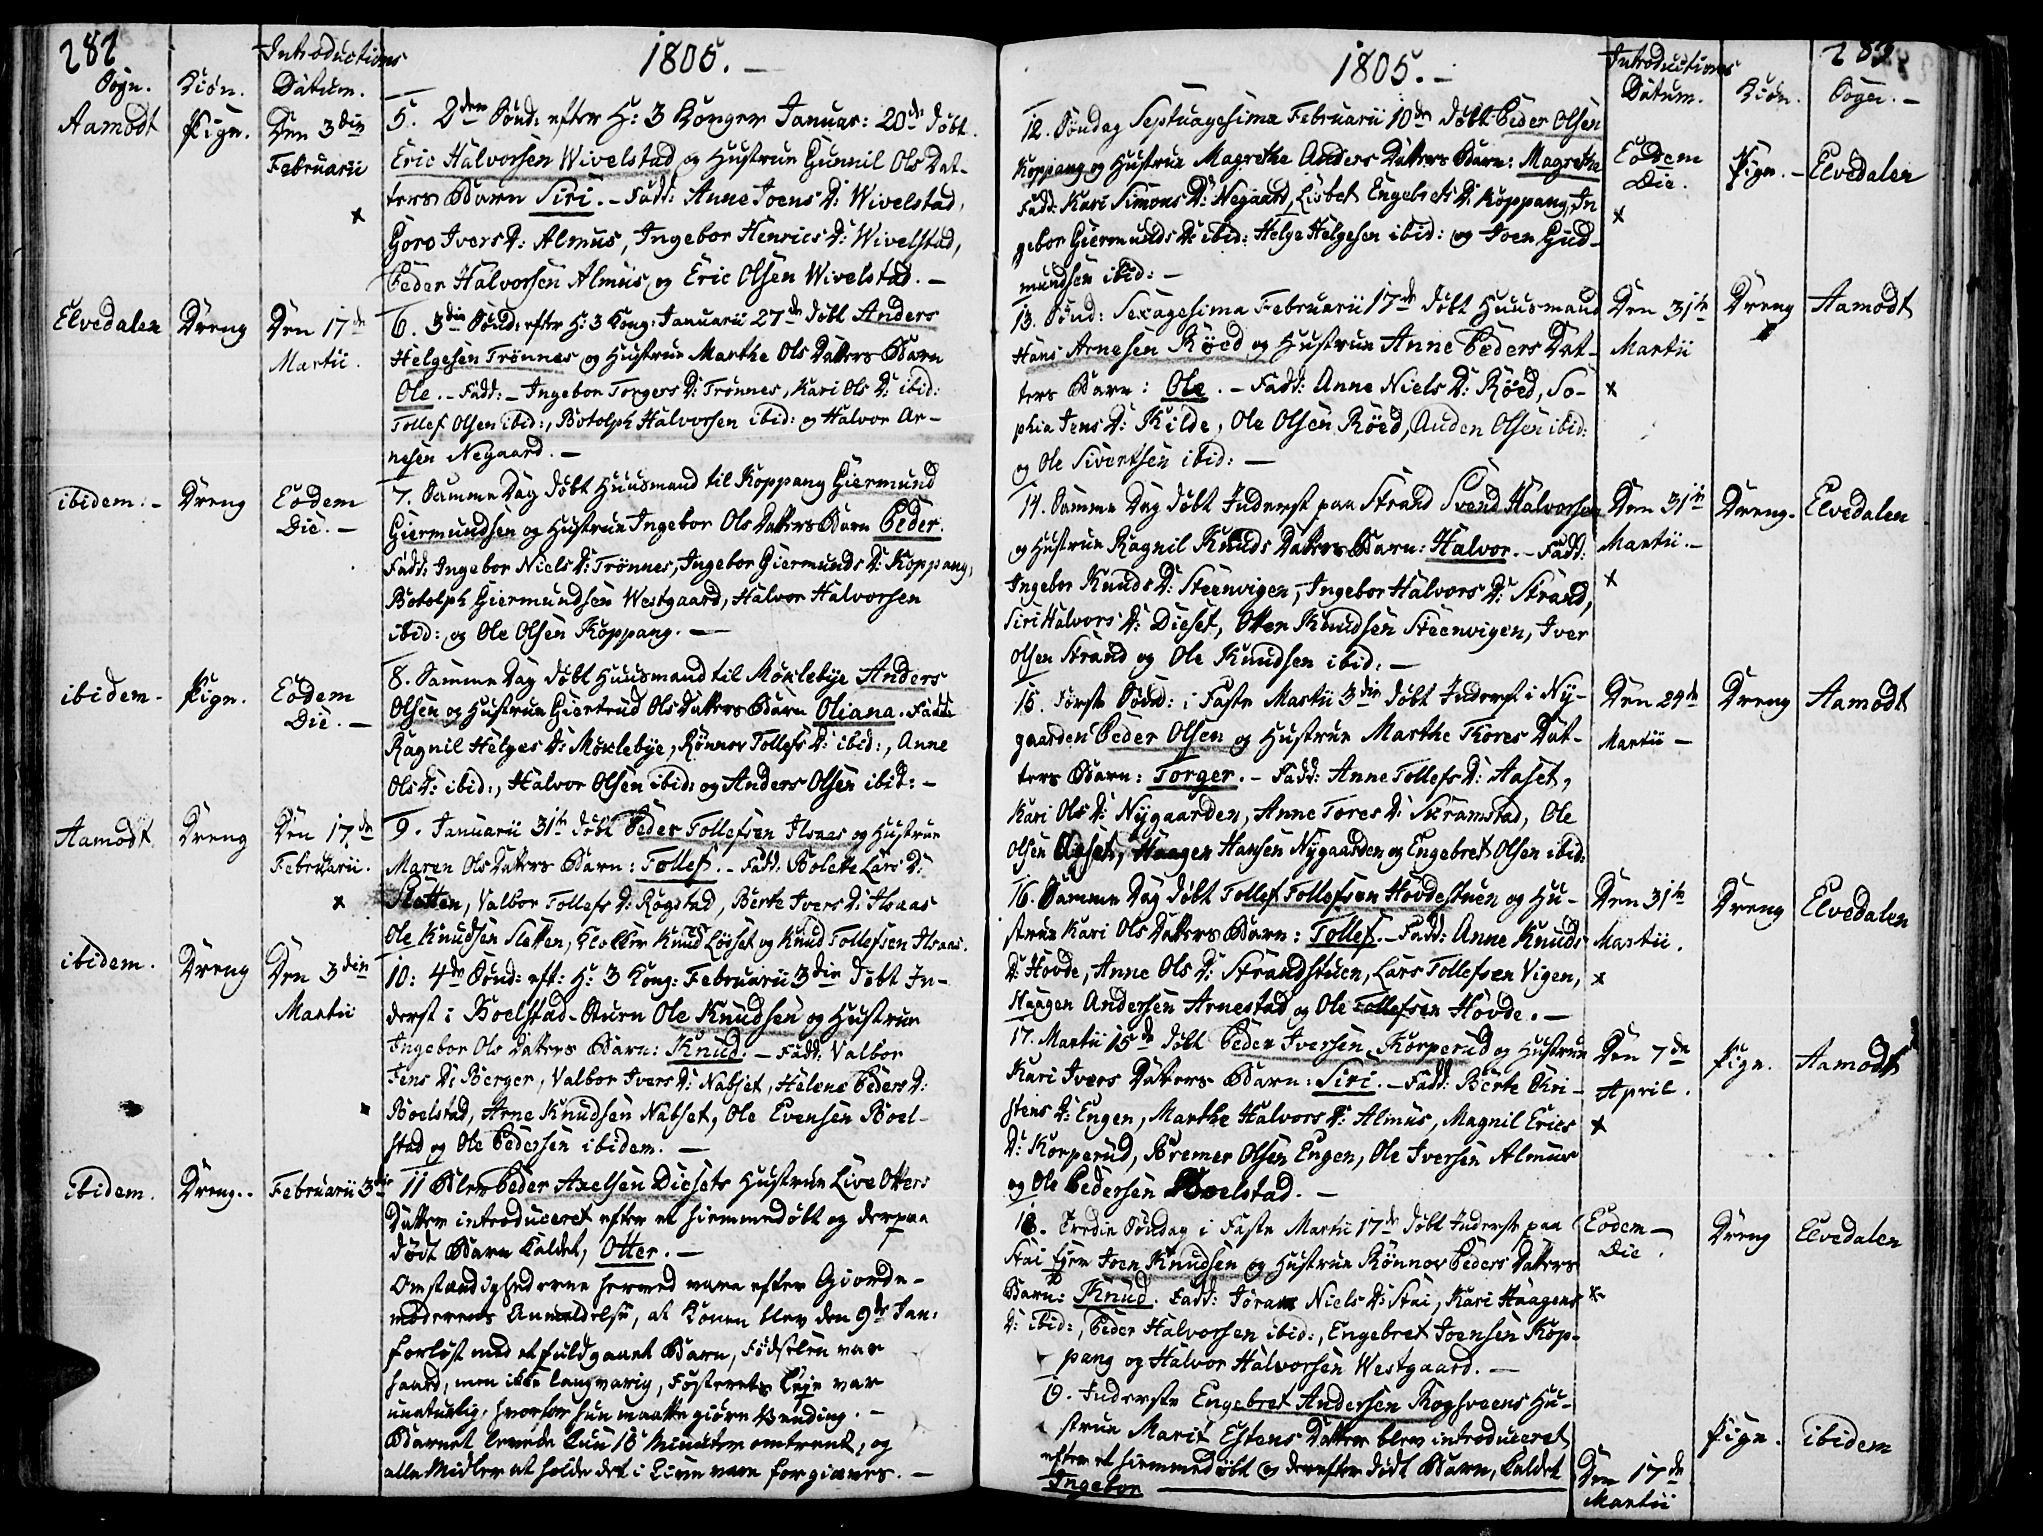 282
Introductions
1805. -
Sogn. Kiön. Datum.
Aamodt Pige. Den 3die Februarii
5. 2den Sönd: efter H: 3 Konger Januar: 20de döbt
Eric Halvorsen Wivelstad og Hustrue Gunnil Ols Dat-
ters Barn Siri. - Fadd: Anne Joens D: Wivelstad,
Goro Ivers D: Almus, Ingebor Henrics D: Wivelstad,
Peder Halvorsen Almus og Eric Olsen Wivelstad. -
Elvedalen Dreng Den 17de Martii.
6. 3die Sönd: efter H: 3 Kong: Januarii 27de döbt Anders
Helgesen Trönnes og Hustrue Marthe Ols Datters Barn
Ole. - Fadd: - Ingebor Torgers D: Trönnes, Kari Ols D: ibid:
Tollef Olsen ibid:, Botolph Halvorsen ibid: og Halvor Ar-
nesen Negaard. -
ibidem. - Dreng Eodem Die. -
7. Samme Dag döbt Huusmand til Koppang Giermund
Giermundsen og Hustrue Ingebor Ols Datters Barn Peder.
Fadd: Ingebor Niels D: Trönnes, Ingebor Giermunds D: Koppang,
Botolph Giermundsen Westgaard, Halvor Halvorsen
ibid: og Ole Olsen Koppang. -
ibidem - Pige. Eodem Die. -
8. Samme Dag döbt Huusmand til Möklebye Anders
Olsen og Hustrue Giertrud Ols Datters Barn Oliana. Fadd:
Ragnil Helges D: Möklebye, Rönnov Tollefs D: ibid:, Anne
Ols D: ibid:, Halvor Olsen ibid: og Anders Olsen ibid: -
Aamodt Dreng Den 17de Februarii.
9. Januarii 31te döbt Peder Tollefsen Ilsaas og Hustrue
Maren Ols Datters Barn: Tollef. - Fadd: Bolette Lars D:
Sletten, Valbor Tollefs D: Rogstad, Berte Ivers D: Ilsaas
Ole Knudsen Sletten, Klokker Knud Löset og Knud Tollefsen Ilsaas.
ibidem. Dreng Den 3die Martii
10: 4de Sönd: eft: H: 3 Kong: Februarii 3die döbt In-
derst i Boelstad-Stuen Ole Knudsen og Hustrue
Ingebor Ols Datters Barn: Knud. - Fadd: Valbor
Jens D: Berger, Valbor Ivers D: Nabset, Helene Peders D:
Boelstad, Arne Knudsen Nabset, Ole Evensen Boel-
stad og Ole Pedersen ibidem. -
ibidem. Dreng. Februarii 3die
11 Blev Peder Axelsen Diesets Hustrue Live Otters
Datter introduceret efter et hiemmedöbt og derpaa
dödt Barn kaldet, Otter. -
Omstændighederne hermed vare efter Giorde-
moderens Anmeldelse, at Konen blev den 9de Jan:
forlöst med et fuldgaaet Barn, Födselen var
haard, men ikke langvarig, Fosterets Leje var
unaturlig, hvorfor hun maatte giöre Vending. -
Barnet levede kun 15 Minuter omtrent, og
alle Midler at holde det i Live vare forgieves. -
283
1805. -
Introductions
Datum. Kiön. Sogn. -
12. Söndag Septuagesima Februarii 10de döbt Peder Olsen
Koppang og Hustrue Magrethe Anders Datters Barn: Magrethe
Fadd: Kari Simons D: Negaard, Lisbet Engebrets D: Koppang, In
gebor Giermunds D: ibid: Helge Helgesen ibid: og Joen Gud-
mundsen ibid: -
Eodem Die. Pige. - Elvedalen
13. Sönd: Sexagesima Februarii 17de döbt Huusmand
Hans Arnesen Röed og Hustrue Anne Peders Dat-
ters Barn: Ole. - Fadd: Anne Niels D: Röed, So-
phia Jens D: Kilde, Ole Olsen Röed, Auden Olsen ibid:
og Ole Sivertsen ibid: -
Den 31te Martii Dreng Aamodt
14. Samme Dag döbt Inderst paa Strand Svend Halvorsen
og Hustrue Ragnil Knuds Datters Barn: Halvor. - Fadd:
Ingebor Knuds D: Steenvigen, Ingebor Halvors D: Strand,
Siri Halvors D: Dieset, Otter Knudsen Steenvigen, Iver
Olsen Strand og Ole Knudsen ibid: -
Den 31te Martii. - Dreng. Elvedalen
15. Förste Sönd: i Faste Martii 3die döbt Inderst i Ny-
gaarden Peder Olsen og Hustrue Marthe Tores Dat-
ters Barn: Torger. - Fadd: Anne Tollefs D: Aaset,
Kari Ols D: Nygaarden, Anne Tores D: Skramstad, Ole
Olsen Aaset, Haagen Hansen Nygaarden og Engebret Olsen ibid:
Den 24de Martii - Dreng Aamodt
16. Samme Dag döbt Tollef Tollefsen Hovdestuen og Hu-
strue Kari Ols Datters Barn: Tollef. - Fadd: Anne Knuds
D: Hovde, Anne Ols D: Strandstuen, Lars Tollefsen Vigen,
Haagen Andersen Arnestad og Ole Tollefsen Hovde. -
Den 31te Martii. Dreng Elvedalen
17. Martii 15de döbt Peder Iversen Korperud og Hustrue
Kari Ivers Datters Barn: Siri. - Fadd: Berte Chri-
stens D: Engen, Marthe Halvors D: Almus, Magnil Erics
D: Korperud, Bremer Olsen Engen, Ole Iversen Almus
og Ole Pedersen Boelstad. -
Den 7de April. Pige. Aamodt
18. Tredie Söndag i Faste Martii 17de döbt Inderst paa
Stai Joen Knudsen og Hustrue Rönnov Peders Datters
Barn: Knud. Fadd: Joran Niels D: Stai, Kari Haagens
D: ibid:, Peder Halvorsen ibid:, Engebret Joensen Kop-
pang og Halvor Halvorsen Westgaard. -
Eodem - Die. Dreng Elvedalen
19. Inderste Engebret Andersen Kogsveens Hu-
strue Marit Estens Datter blev introduceret
efter et hiemmedöbt og derefter dödt Barn, kaldet
Ingebor
Den 17de Martii Pige. ibidem